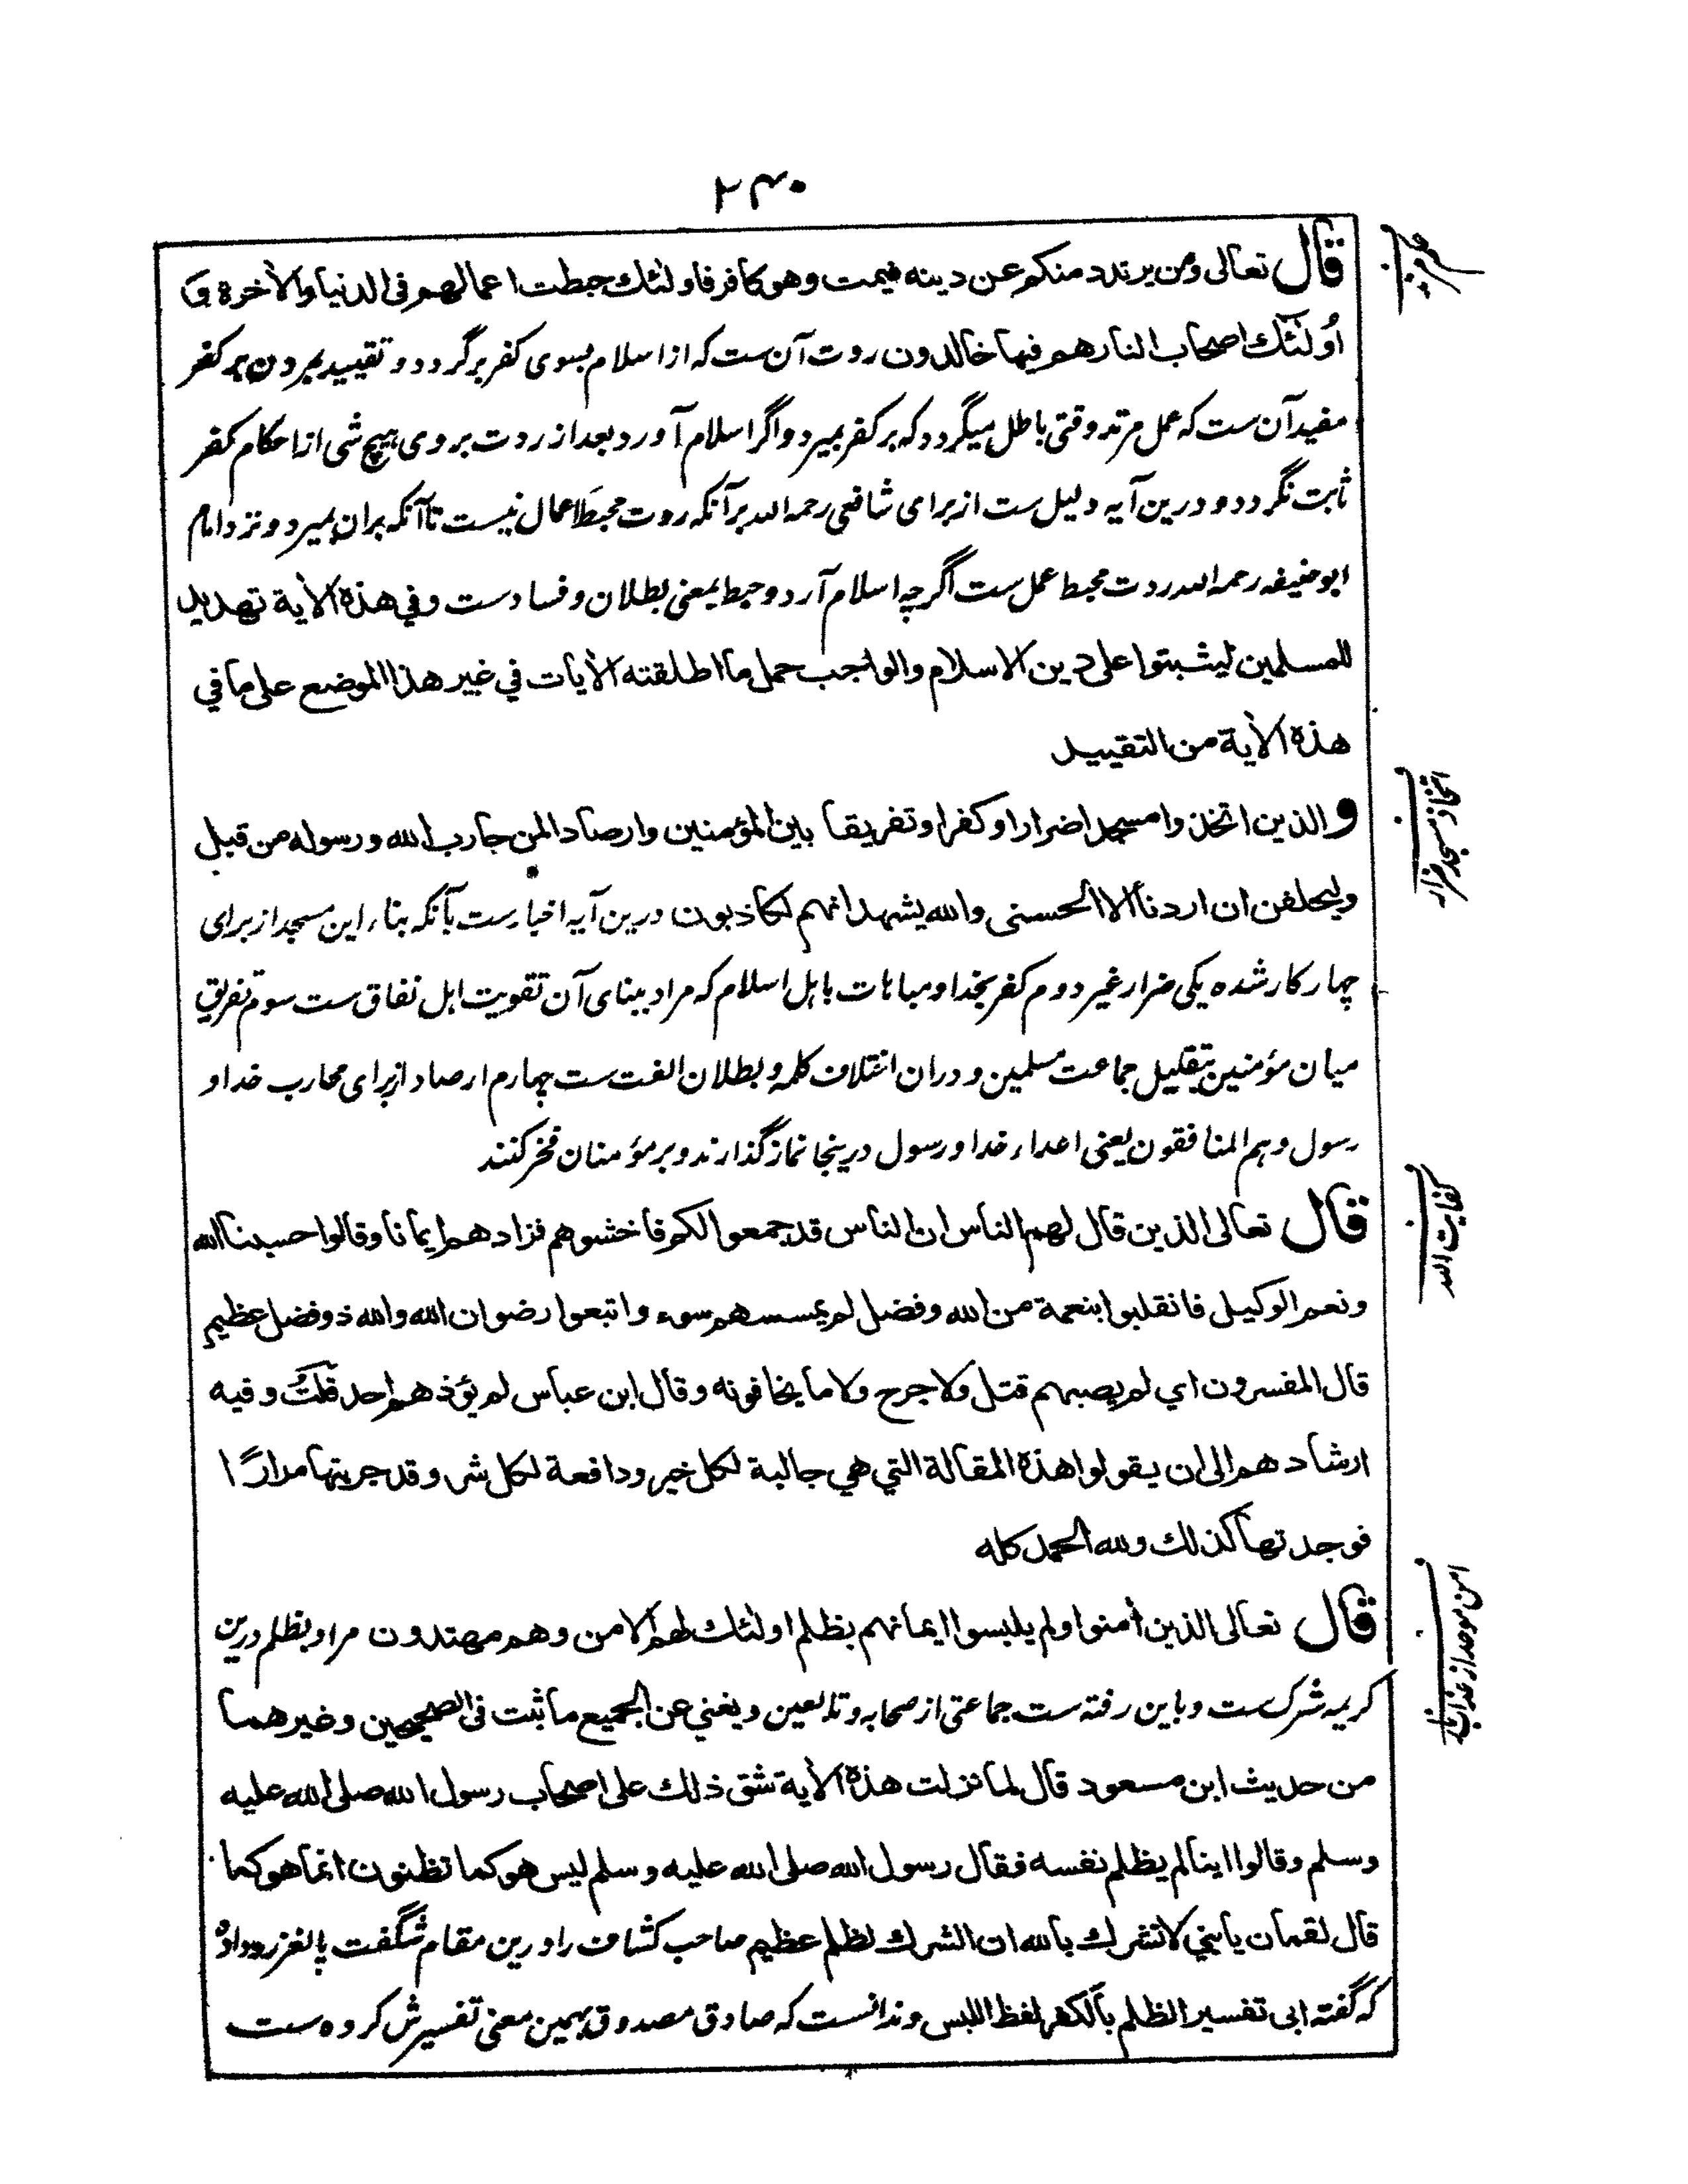 ۲۴۰
قال تعالى ومن يرتدد منكم عن دينه فيمت وهو كافر فاولئك حبطت اعمالهم في الدنيا والأخرة و
اُولئك اصحاب النار هم فيها خالدون ردت آن ست که از اسلام بسوی کفر برگردد و تقیید بمردن بر کفر
مفید آن ست که عمل مرتد وقتی باطل میگردد که بر کفر بمیرد و اگر اسلام آورد بعد از ردت بر وی هیچ شی از احکام کفر
ثابت نگردد و درین آیه دلیل ست از برای شافعی رحمه الله بر آنکه ردت محبط اعمال نیست تا آنکه بران بمیرد و نزد امام
ابو حنیفه رحمه الله ردت محبط عمل ست اگرچه اسلام آرد و حبط بمعنی بطلان و فساد ست وفي هذه الأية تهديد
للمسلمين ليثبتوا على دين الاسلام والواجب حمل ما اطلقته الأيات في غير هذا الموضع على ما في
هذه الأية من التقييد
والذين اتخذوا مسجدا ضرارا وكفرا وتفريقا بين المؤمنين وارصادا لمن حارب الله ورسوله من قبل
وليحلفن ان اردنا الا الحسنى والله يشهد انهم لكاذبون درین آیه اخبار ست بآنکه بناء این مسجد از برای
چهار کار شده یکی ضرار غیر دوم کفر بخدا و مباهات باهل اسلام که مراد ببنای آن تقویت اهل نفاق ست سوم تفریق
میان مؤمنین بتقلیل جماعت مسلمین و دران اختلاف کلمه و بطلان الفت ست چهارم ارصاد از برای محارب خدا و
رسول وهم المنافقون یعنی اعداء خدا و رسول درینجا نماز گذارند و بر مؤمنان فخر کنند
قال تعالى الذين قال لهم الناس ان الناس قد جمعوا لكم فاخشوهم فزادهم ايمانا وقالوا حسبنا الله
ونعم الوكيل فانقلبوا بنعمة من الله وفضل لم يمسسهم سوء واتبعوا رضوان الله والله ذو فضل عظيم
قال المفسرون اي لم يصبهم قتل ولا جرح ولا ما يخافونه وقال ابن عباس لم يؤذهم احد قلتُ وفيه
ارشادهم الى ان يقولوا هذه المقالة التي هي جالبة لكل خير ودافعة لكل شر وقد جربتها مرارًا
فوجدتها كذلك ولله الحمد كله
قال تعالى الذين أمنوا ولم يلبسوا ايمانهم بظلم اولئك لهم الامن وهم مهتدون مراد بظلم درین
کریمه شرک ست و باین رفته ست جماعتی از صحابه و تابعین ويغني عن الجميع ما ثبت في الصحيحين وغيرهما
من حديث ابن مسعود قال لما نزلت هذه الأية شق ذلك على اصحاب رسول الله صلى الله عليه
وسلم وقالوا اينا لم يظلم نفسه فقال رسول الله صلى الله عليه وسلم ليس هو كما تظنون انما هو كما
قال لقمان يا بني لا تشرك بالله ان الشرك لظلم عظيم صاحب کشاف را درین مقام شگفت پالغز روداده
که گفته ابى تفسير الظلم بالكفر لفظ اللبس و ندانست که صادق مصدوق بهمین معنی تفسیرش کرده ست
اتخاذ مسجد ضرار
کفایت الله
امن موحد از عذاب